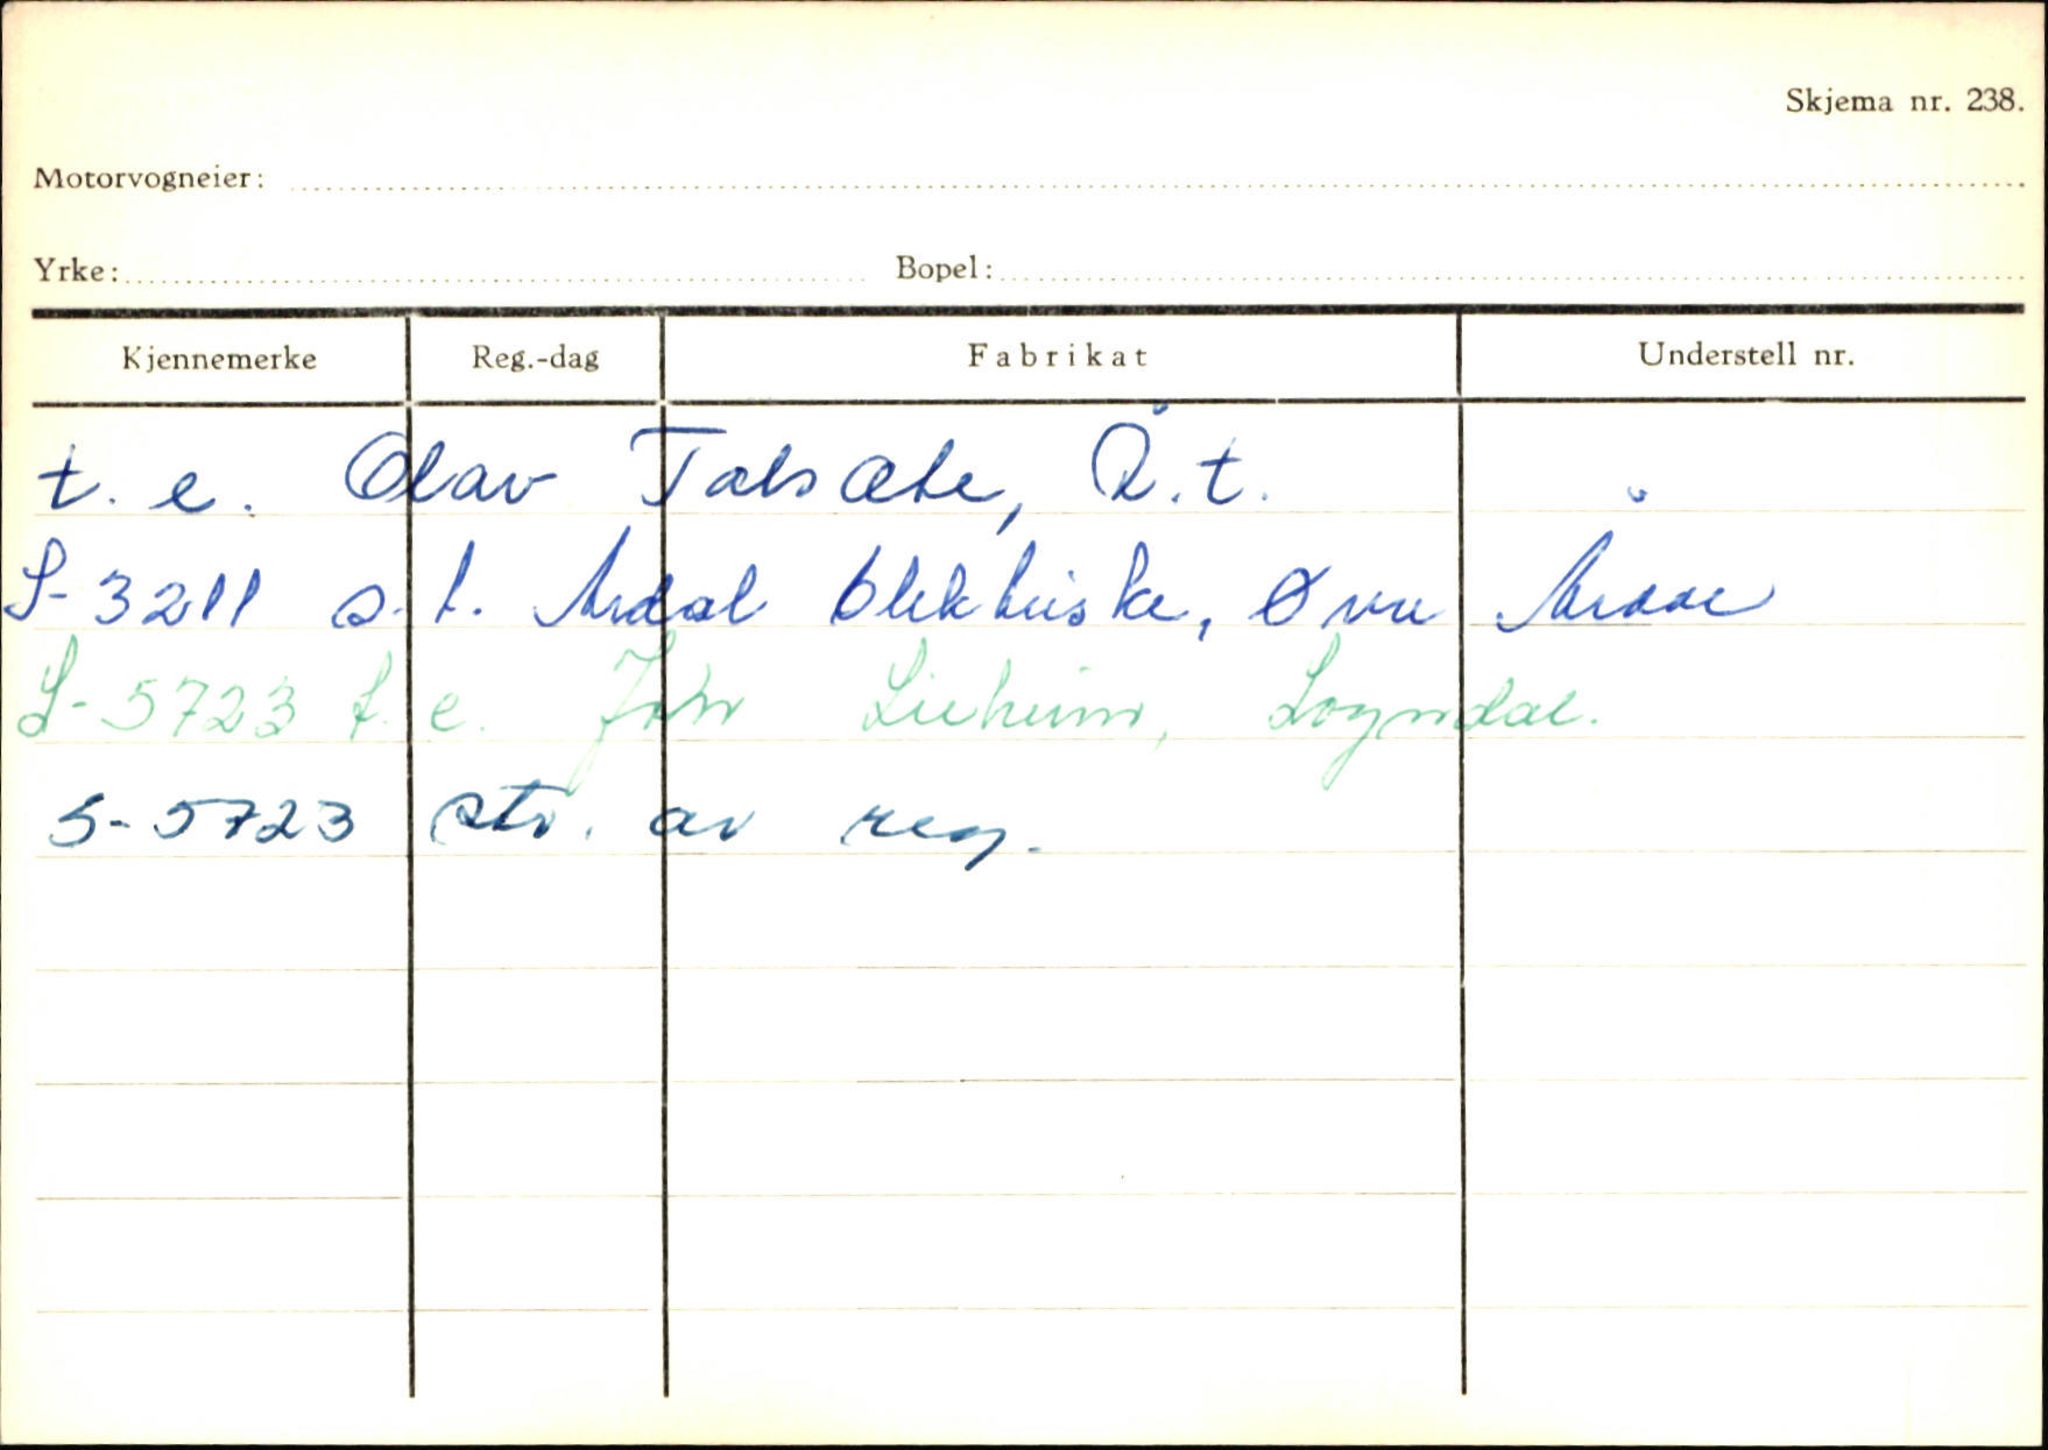 Skjema nr. 238.
Motorvogneier:
Yrke: Bopel:
Kjennemerke Reg.-dag Fabrikat Understell nr.
t. e. Olav Å.t.
S-3211 s.t. Årdal blekkiske, Øvre Årdal
S-5723 t. e. John Lieheim, Sogndal.
S-5723 str. av reg.